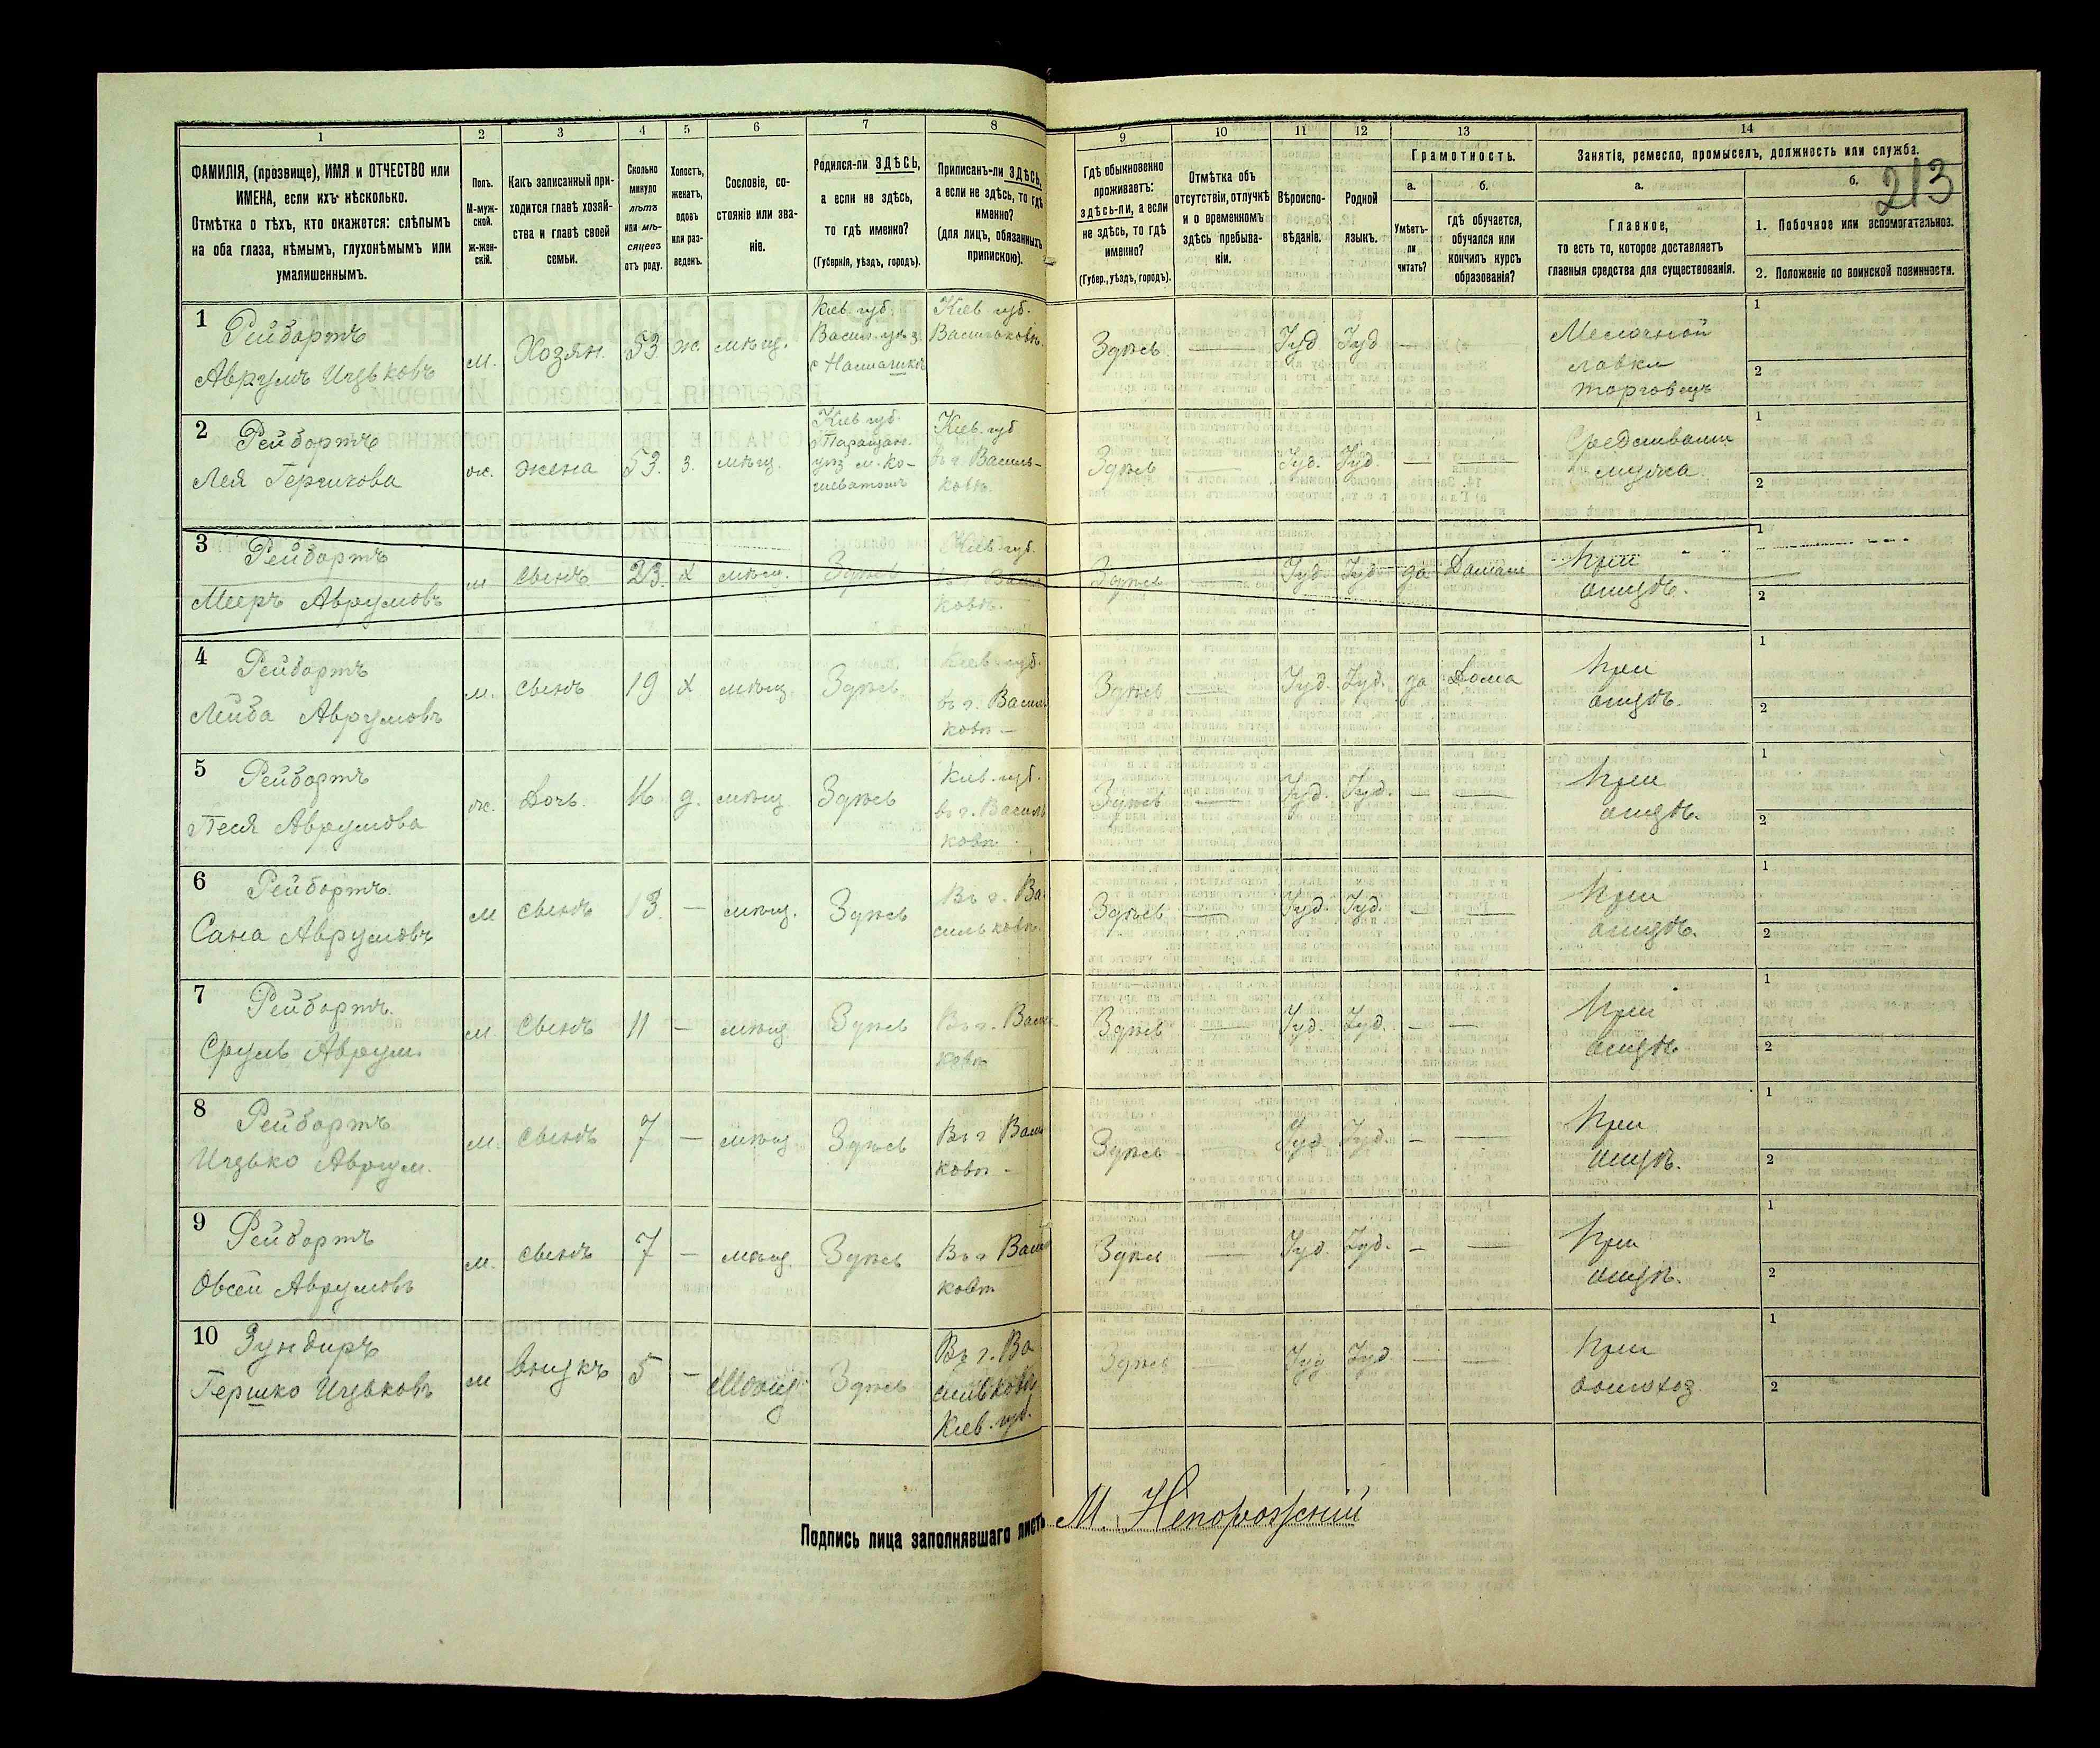 213
1
2
3
4
5
6
7
8
9
10
11
12
13
14
ФАМИЛІЯ, (прозвище), ИМЯ и ОТЧЕСТВО или
ИМЕНА, если ихъ нѣсколько.
Отмѣтка о тѣхъ, кто окажется: слѣпымъ
на оба глаза, нѣмымъ, глухонѣмымъ или
умалишеннымъ.
Полъ.
М-муж-
ской.
ж-жен-
скій.
Какъ записанный при-
ходится главѣ хозяй-
ства и главѣ своей
семьи.
Сколько
минуло
лѣтъ
или мѣ-
сяцевъ
отъ роду.
Холостъ,
женатъ,
вдовъ
или раз-
веденъ.
Сословіе, со-
стояніе или зва-
ніе.
Родился-ли ЗДѢСЬ,
а если не здѣсь,
то гдѣ именно?
(Губернія, уѣздъ, городъ).
Приписанъ-ли ЗДѢСЬ,
а если не здѣсь, то гдѣ
именно?
(для лицъ, обязанныхъ
припискою).
Гдѣ обыкновенно
проживаетъ:
здѣсь-ли, а если
не здѣсь, то гдѣ
именно?
(Губер., уѣздъ, городъ).
Отмѣтка объ
отсутствіи, отлучкѣ
и о временномъ
здѣсь пребыва-
ніи.
Вѣроиспо-
вѣданіе.
Родной
языкъ.
Грамотность.
а.
б.
Умѣетъ-
ли
читать?
гдѣ обучается,
обучался или
кончилъ курсъ
образованія?
Занятіе, ремесло, промыселъ, должность или служба.
а.
б.
Главное,
то есть то, которое доставляетъ
главныя средства для существованія.
1. Побочное или вспомогательное.
2. Положеніе по воинской повинности.
1
Рейбортъ
Аврумъ Ицьковъ
м.
Хозяин.
53
ж.
мѣщ.
Кіев. губ.
Васил. уѣз.
Кіев. губ.
Васильковъ.
Здѣсь
—
Іуд
Іуд
—
Мелочной
лавки
торговецъ
1
2
2
Рейбортъ
Лея Гершкова
ж.
жена
53.
з.
мѣщ.
Кіев. губ.
Таращан.
уѣз м. Ко-
Кіев. губ
въ г. Василь-
ковѣ.
Здѣсь
—
Іуд.
Іуд.
—
—
мужа.
1
2
3
Рейбортъ
Мееръ Аврумовъ
м
сынъ
23.
х
мѣщ.
Здѣсь
Кіев. губ.
ковѣ.
Здѣсь
Іуд.
Іуд.
да
При
отцѣ.
1
2
4
Рейбортъ
Лейба Аврумовъ
м.
сынъ
19
х
мѣщ
Здѣсь
Кіев. губ.
въ г. Василь
ковѣ —
Здѣсь
—
Іуд.
Іуд.
да
Дома
При
отцѣ.
1
2
5
Рейбортъ
Песя Аврумова
ж.
Дочь.
16
д.
мѣщ
Здѣсь
Кіев. губ.
въ г. Василь
ковѣ
Здѣсь
—
Іуд.
Іуд.
—
—
При
отцѣ.
1
2
6
Рейбортъ.
Сана Аврумовъ
м
сынъ
13.
—
мѣщ.
Здѣсь
Въ г. Ва
сильковѣ.
Здѣсь
—
Іуд.
Іуд.
—
—
При
отцѣ.
1
2
7
Рейбортъ.
Сруль Аврум.
м.
Сынъ
11
—
мѣщ
Здѣсь
Въ г. Васил
ковѣ
Здѣсь
—
Іуд.
Іуд.
—
—
При
отцѣ
1
2
8
Рейбортъ
Ицько Аврум.
м.
сынъ
7
—
мѣщ
Здѣсь
Въ г Васил
ковѣ —
Здѣсь
Іуд
Іуд.
—
—
При
отцѣ.
1
2
9
Рейбортъ
Овсей Аврумовъ
м.
сынъ
7
—
мѣщ.
Здѣсь
Въ г Васил
ковѣ
Здѣсь
—
Іуд.
Іуд.
—
—
При
отцѣ.
1
2
10
Гершко Ицьковъ
м
внукъ
5
—
Мѣщ.
Здѣсь
Въ г. Ва
сильковѣ
Кіев. губ.
Здѣсь
—
Іуд
Іуд.
—
—
При
1
2
Подпись лица заполнявшаго листъ
М. Непорожній